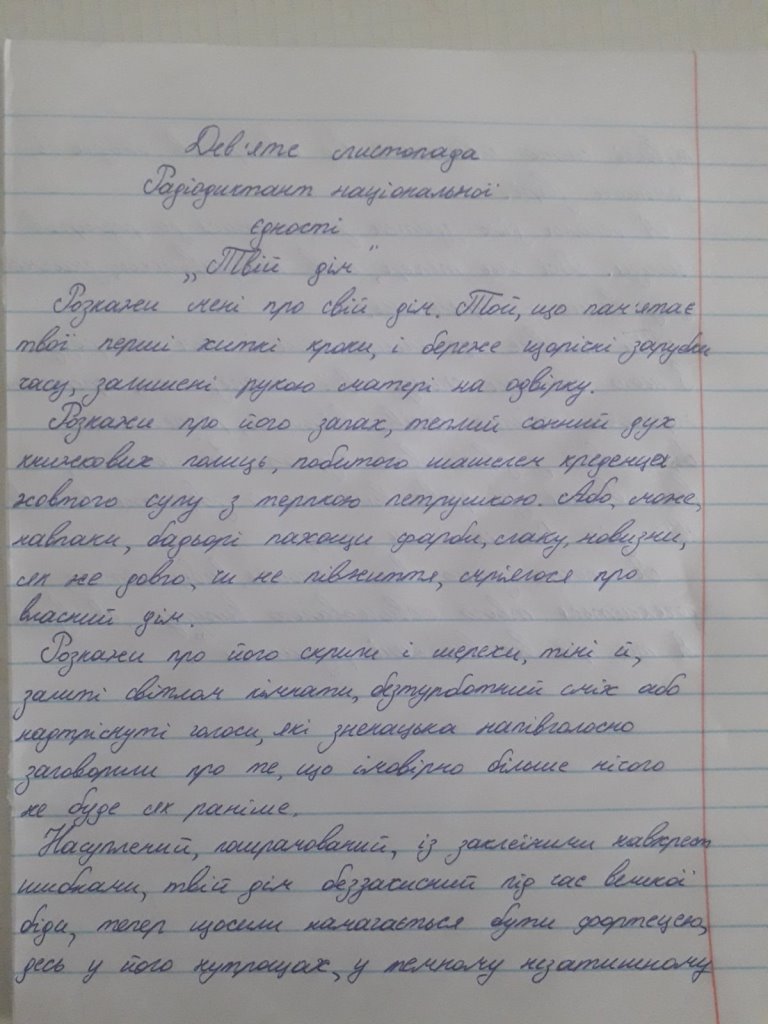 Дев'яте листопада
Радіодиктант національної
єдності
„Твій дім"
Розкажи мені про свій дім. Той, що пам'ятає
твої перші хиткі кроки, і береже щорісні зарубки
часу, залишені рукою матері на одвірку.
Розкажи про його запах, теплий сонний дух
книжкових полиць, побитого шашелем креденця
жовтого супу з терпкою петрушкою. Або, може,
навпаки, бадьорі пахощи фарби, лаку, новизни,
як же довго, чи не півжиття, мріялося про
власний дім.
Розкажи про його скрипи і шерехи, тіні й,
залиті світлом кімнати, безтурботний сміх або
надтріснуті голоси, які зненацька напівголосно
заговорили про те, що імовірно більше нісого
не буде як раніше.
Насуплений, пошрамований, із заклеїними навхрест
шибками, твій дім беззахисний під час великої
біди, тепер щосили намагається бути фортецею,
десь у його нутрощах, у темному незатишному